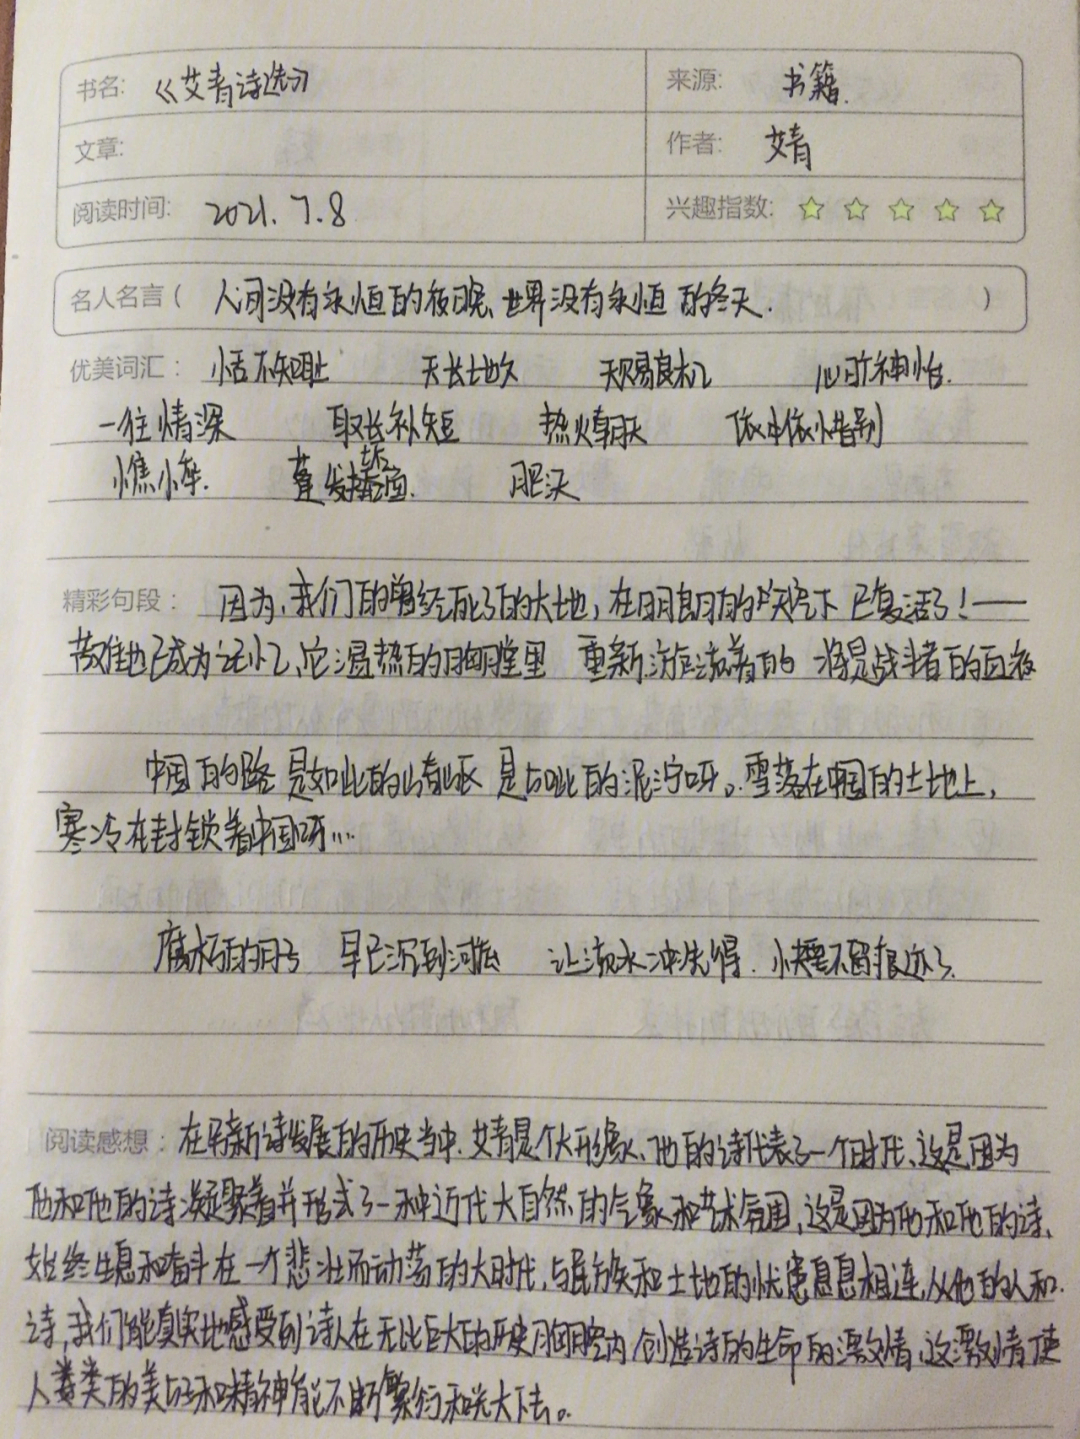 书名: 《艾青诗选》 来源: 书籍.
文章: 作者: 艾青
阅读时间: 2021.7.8 兴趣指数: ☆ ☆ ☆ ☆ ☆
名人名言( 人间没有永恒的夜晚、世界没有永恒的冬天. )
优美词汇: 恬不知耻 天长地久 天赐良机 心旷神怡.
一往情深 取长补短 热火朝天 依依惜别
憔悴. 蓬发垢面. 肥沃
精彩句段: 因为,我们的曾经死了的大地,在明朗的天空下 已复活了!——
苦难也已成为记忆,它温热的胸膛里 重新漩流着的 将是战斗者的血液
中国的路 是如此的崎岖 是如此的泥泞呀。雪落在中国的土地上,
寒冷在封锁着中国呀...
腐朽的日子 早已沉到河底 让流水冲洗得. 快要不留痕迹了.
阅读感想: 在新诗发展的历史当中. 艾青是个大形象、他的诗代表了一个时代、这是因为
他和他的诗凝聚着并形成了一种近代大自然的气象和艺术氛围,这是因为他和他的诗、
始终生息和奋斗在一个悲壮而动荡的大时代,与民族和土地的忧患息息相连,从他的人和.
诗,我们能真实地感受到诗人在无比巨大的历史胸腔内 创造诗的生命的激情,这激情使
人类的美好和精神能不断繁衍和光大下去。